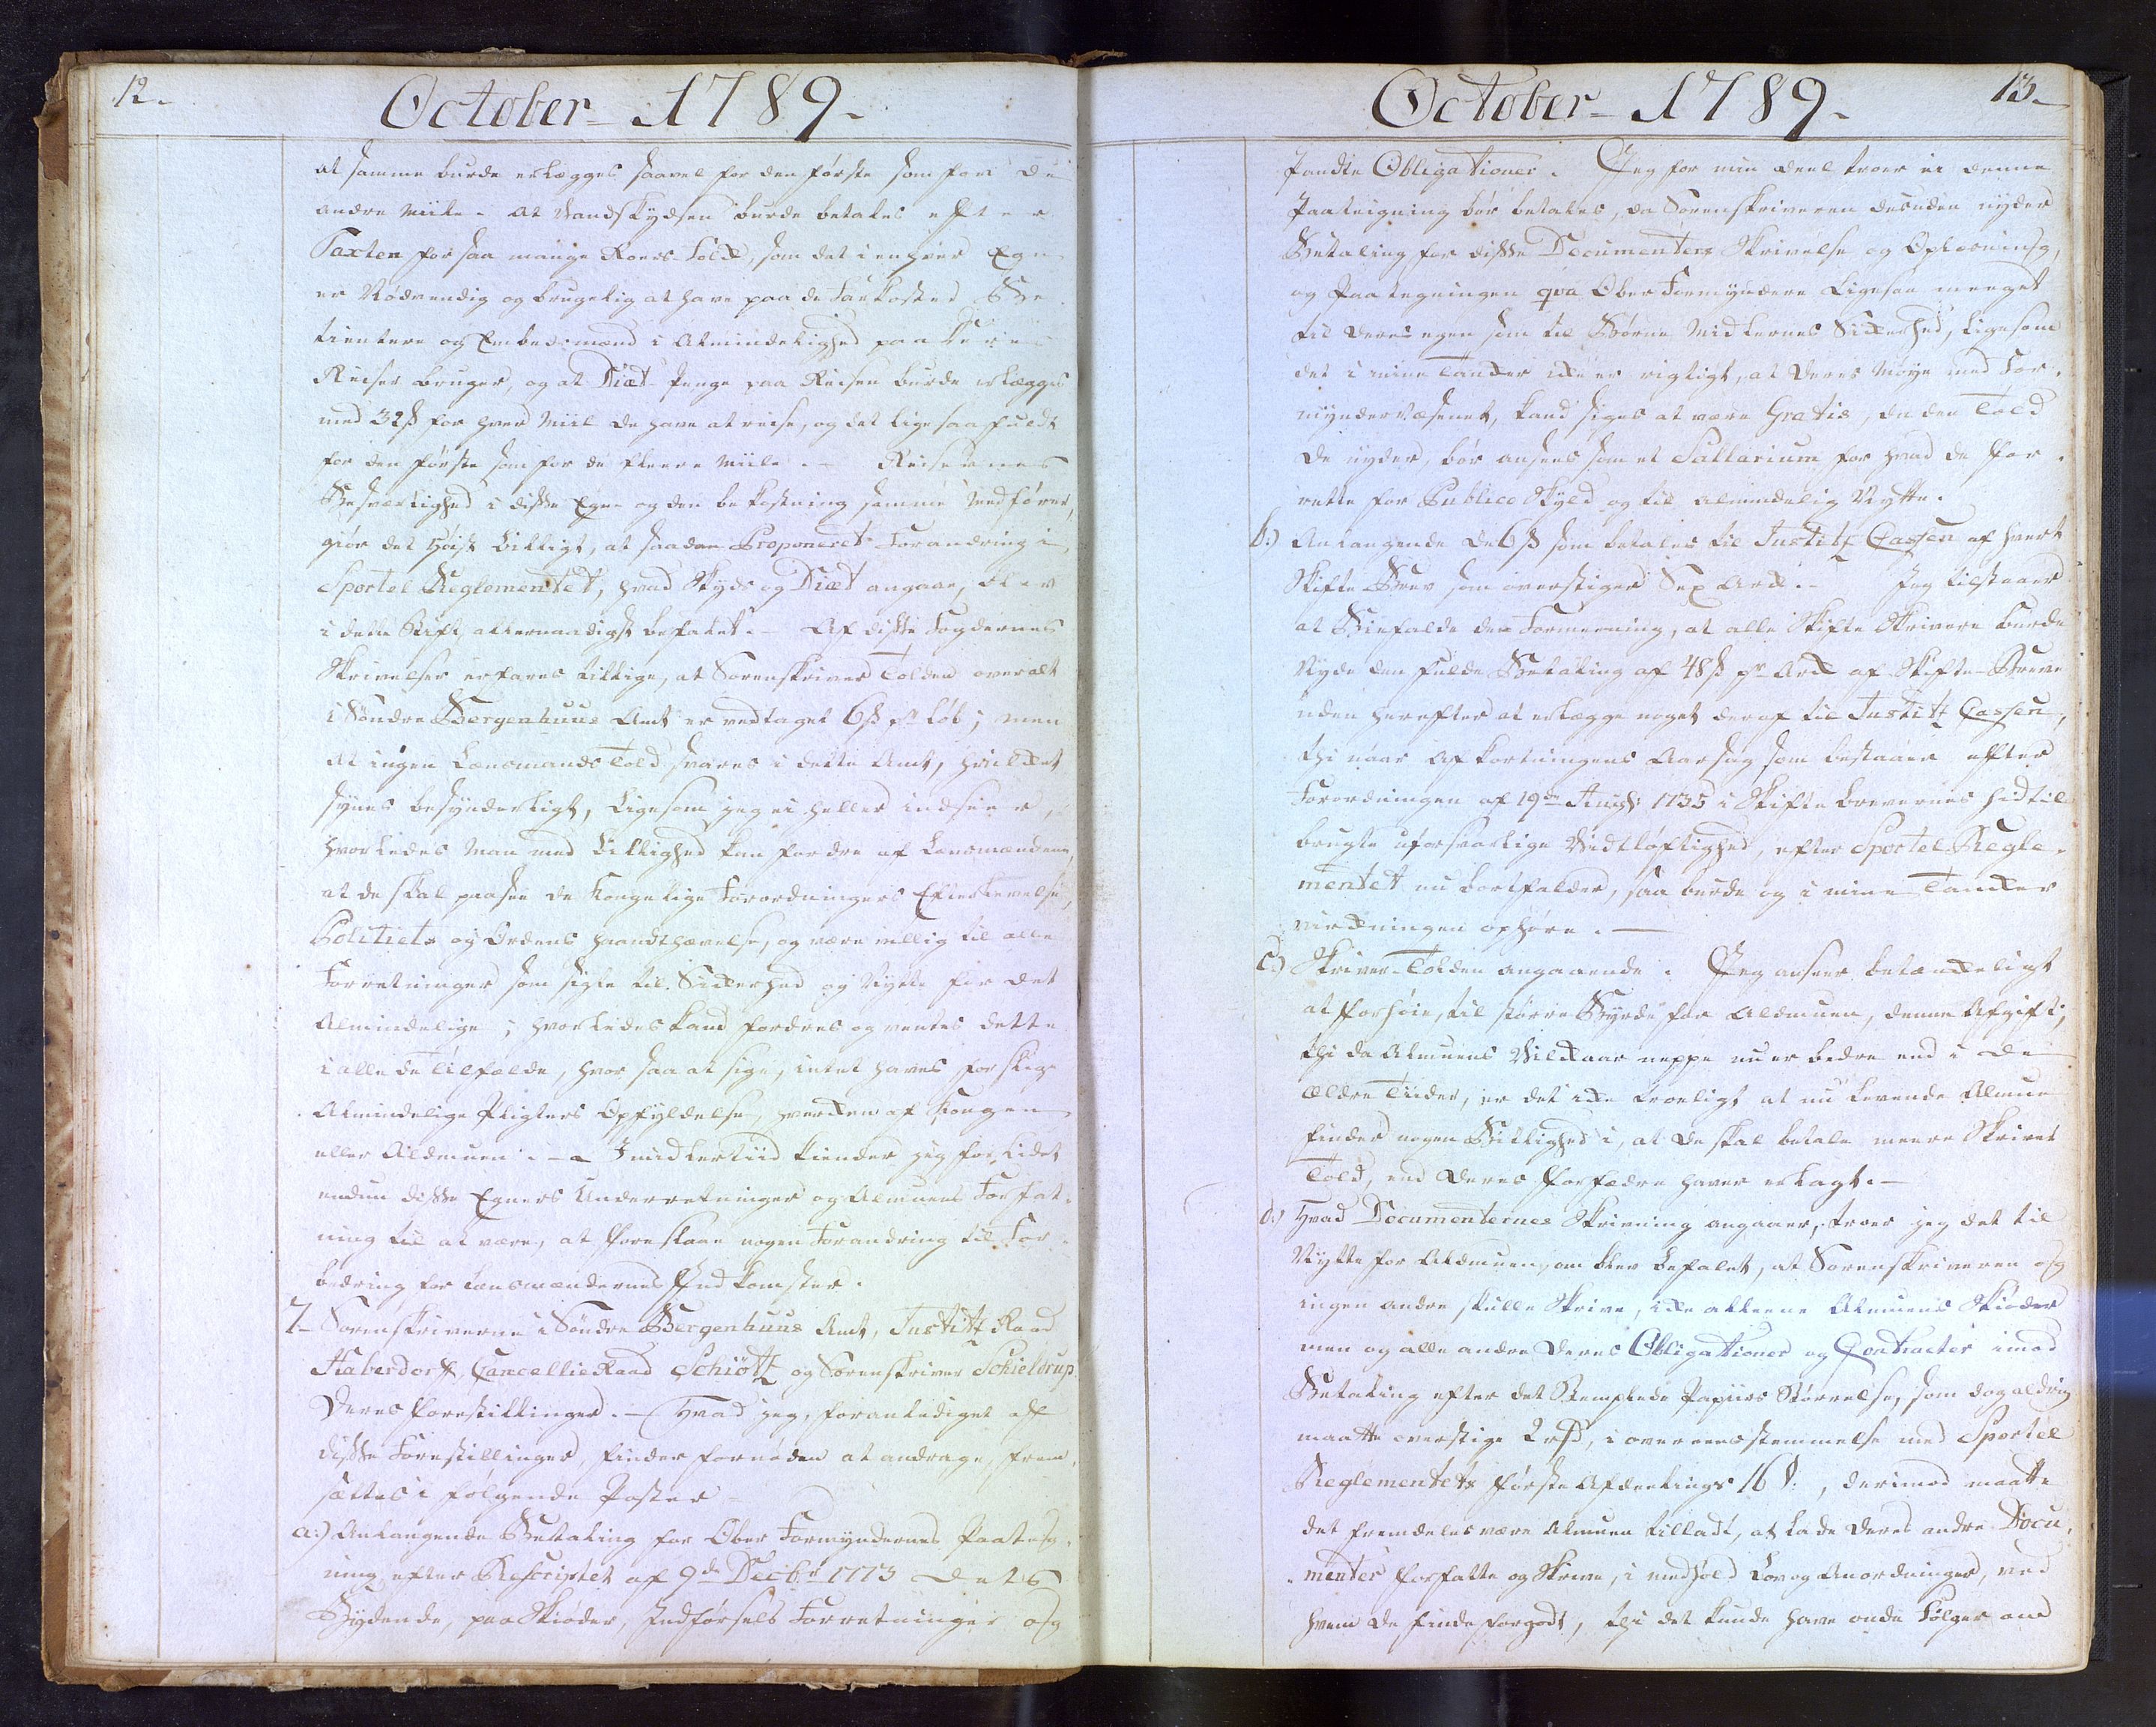 12.
October 1789.
at samme burde erlægges saavel for den første som for de
andre Miile. At Vandskydsen burde betales efter
Taxten for saa mange Roers Told, som det i enhver Egn
er Nødvendig og brugelig at have paa de Farkoster Be¬
tientere og Embedsmænd i Almindelighed paa Deres
Reiser bruger, og at Diæt-Penge paa Reisen burde erlægges
med 32 ß for hver Miil de have at reise, og det lige saa fuldt
for den første som for de fleere Miile. – Reisernes
Besværlighed i disse Egne og den bekostning samme Medfører,
giør det høist billigt, at saadan Proponeret Forandring i
Sportel Reglementet, hvad Skyds og Diæt angaaer, blev
i dette Stift allernaadigst befalet. – Af disse Fogdernes
Skrivelser erfares tillige, at Sorenskriver Tolden overalt
i Søndre Bergenhuus Amt er vedtaget 6 ß pr Løb; men
at ingen Lænsmands Told svares i dette Amt, hvilket
synes besynderligt, Ligesom jeg ei heller indseer,
hvorledes Man med Billighed kan fordre af Lænsmændene,
at de skal paasee de Kongelige Forordningers Efterlevelse,
Politiets og Ordens haandthævelse, og være villig til alle
Forretninger som sigte til Sikkerhed og Nytte for det
Almindelige; hvorledes kand fordres og ventes dette
i alle de Tilfælde, hvor saa at sige, intet haves for slige
Almindelige Pligters Opfyldelse, hverken af Kongen
eller Aldmuen. – Imidlertiid kiender jeg for lidet
endnu disse Egners Underretninger og Almuens Forfat¬
ning til at være, at foreslaae nogen Forandring til For¬
bedring for Lænsmændernes Indkomster.
7 – Sorenskriverne i Søndre Bergenhuus Amt, Justitz Raad
Haberdorff, Cancellie Raad Schiøtz og Sorenskriver Schieldrup
Deres forestillinger. – Hvad jeg, foranlediget af
disse Forestillinger, finder fornøden at andrage, frem¬
sættes i følgende Poster
a.) Anlangende Betaling for Ober Formyndernes Paateg¬
ning efter Rescriptet af 9de Decbr 1773 dets
Bydende, paa Skiøder, Indførsels Forretninger og
13
October 1789.
Pandte Obligationer. Jeg for min deel troer ei denne
Paateigning bør betales, da Sorenskriveren desuden nyder
Betaling for disse Documenters Skrivelse og Oplæsning,
og Paategningen qva Ober Formyndere Ligesaa meeget
til deres egen som til Børne Midlernes Sikerhed, ligesom
det i mine Tanker ikke er rigtigt, at Deres Møye med For¬
mynder Væsenet, kand siges at være Gratis, da den Told
de nyder, bør ansees som et Sallarium for hvad de for¬
rette for Publico Skyld og til almindelig Nytte.
b.) Anlangende de 6 ß som betales til Justitz Cassen af hvert
Skifte Brev som overstiger Sex Ark. – Jeg tilstaaer
at Biefalde den Formeening, at alle Skifte Skrivere burde
Nyde den fulde Betaling af 48 ß pr Ark af Skifte-Breve
uden herefter at erlægge noget deraf til Justitz Cassen,
thi naar Afkortningens Aarsag som bestaaer efter
Forordningen af 19de Augt 1735 i Skifte brevernes hidtil
brugte uforsvarlige Vidtløftighed, efter Sportel Regle¬
mentet nu bortfalder, saa burde og i mine Tanker
virkningen ophøre. –
c.) Skriver-Tolden angaaende. Jeg anseer betænkeligt
at forhøie, til større Byrde for Aldmuen, denne Afgift;
thi da Almuens Vilkaar neppe nu er bedre end i de
ældre Tiider, er det ikke troeligt at nu levende Almue
finder nogen Billighed i, at de skal betale meere Skriver
Told, end Deres Forfædre haver erlagt. –
d.) Hvad Documenternes Skrivning angaaer, troer jeg det til
Nytte for Aldmuen, om blev befalet, at Sorenskriveren og
ingen andre skulle Skrive, ikke alleene Almuens Skiøder
men og alle andre Deres Obligationer og Contracter imod
Betaling efter det Stemplede Papiirs Størrelse, som dog aldrig
maatte overstige 2 rd, i overeensstemmelse med Sportel
Reglementets første Afdeelings 16 §., derimod maatte
det fremdeles være Almuen tilladt, at lade Deres andre Docu¬
menter forfatte og Skrive, i medhold Lov og Anordninger, ved
hvem De finde forgodt, thi det kunde have onde Følger om